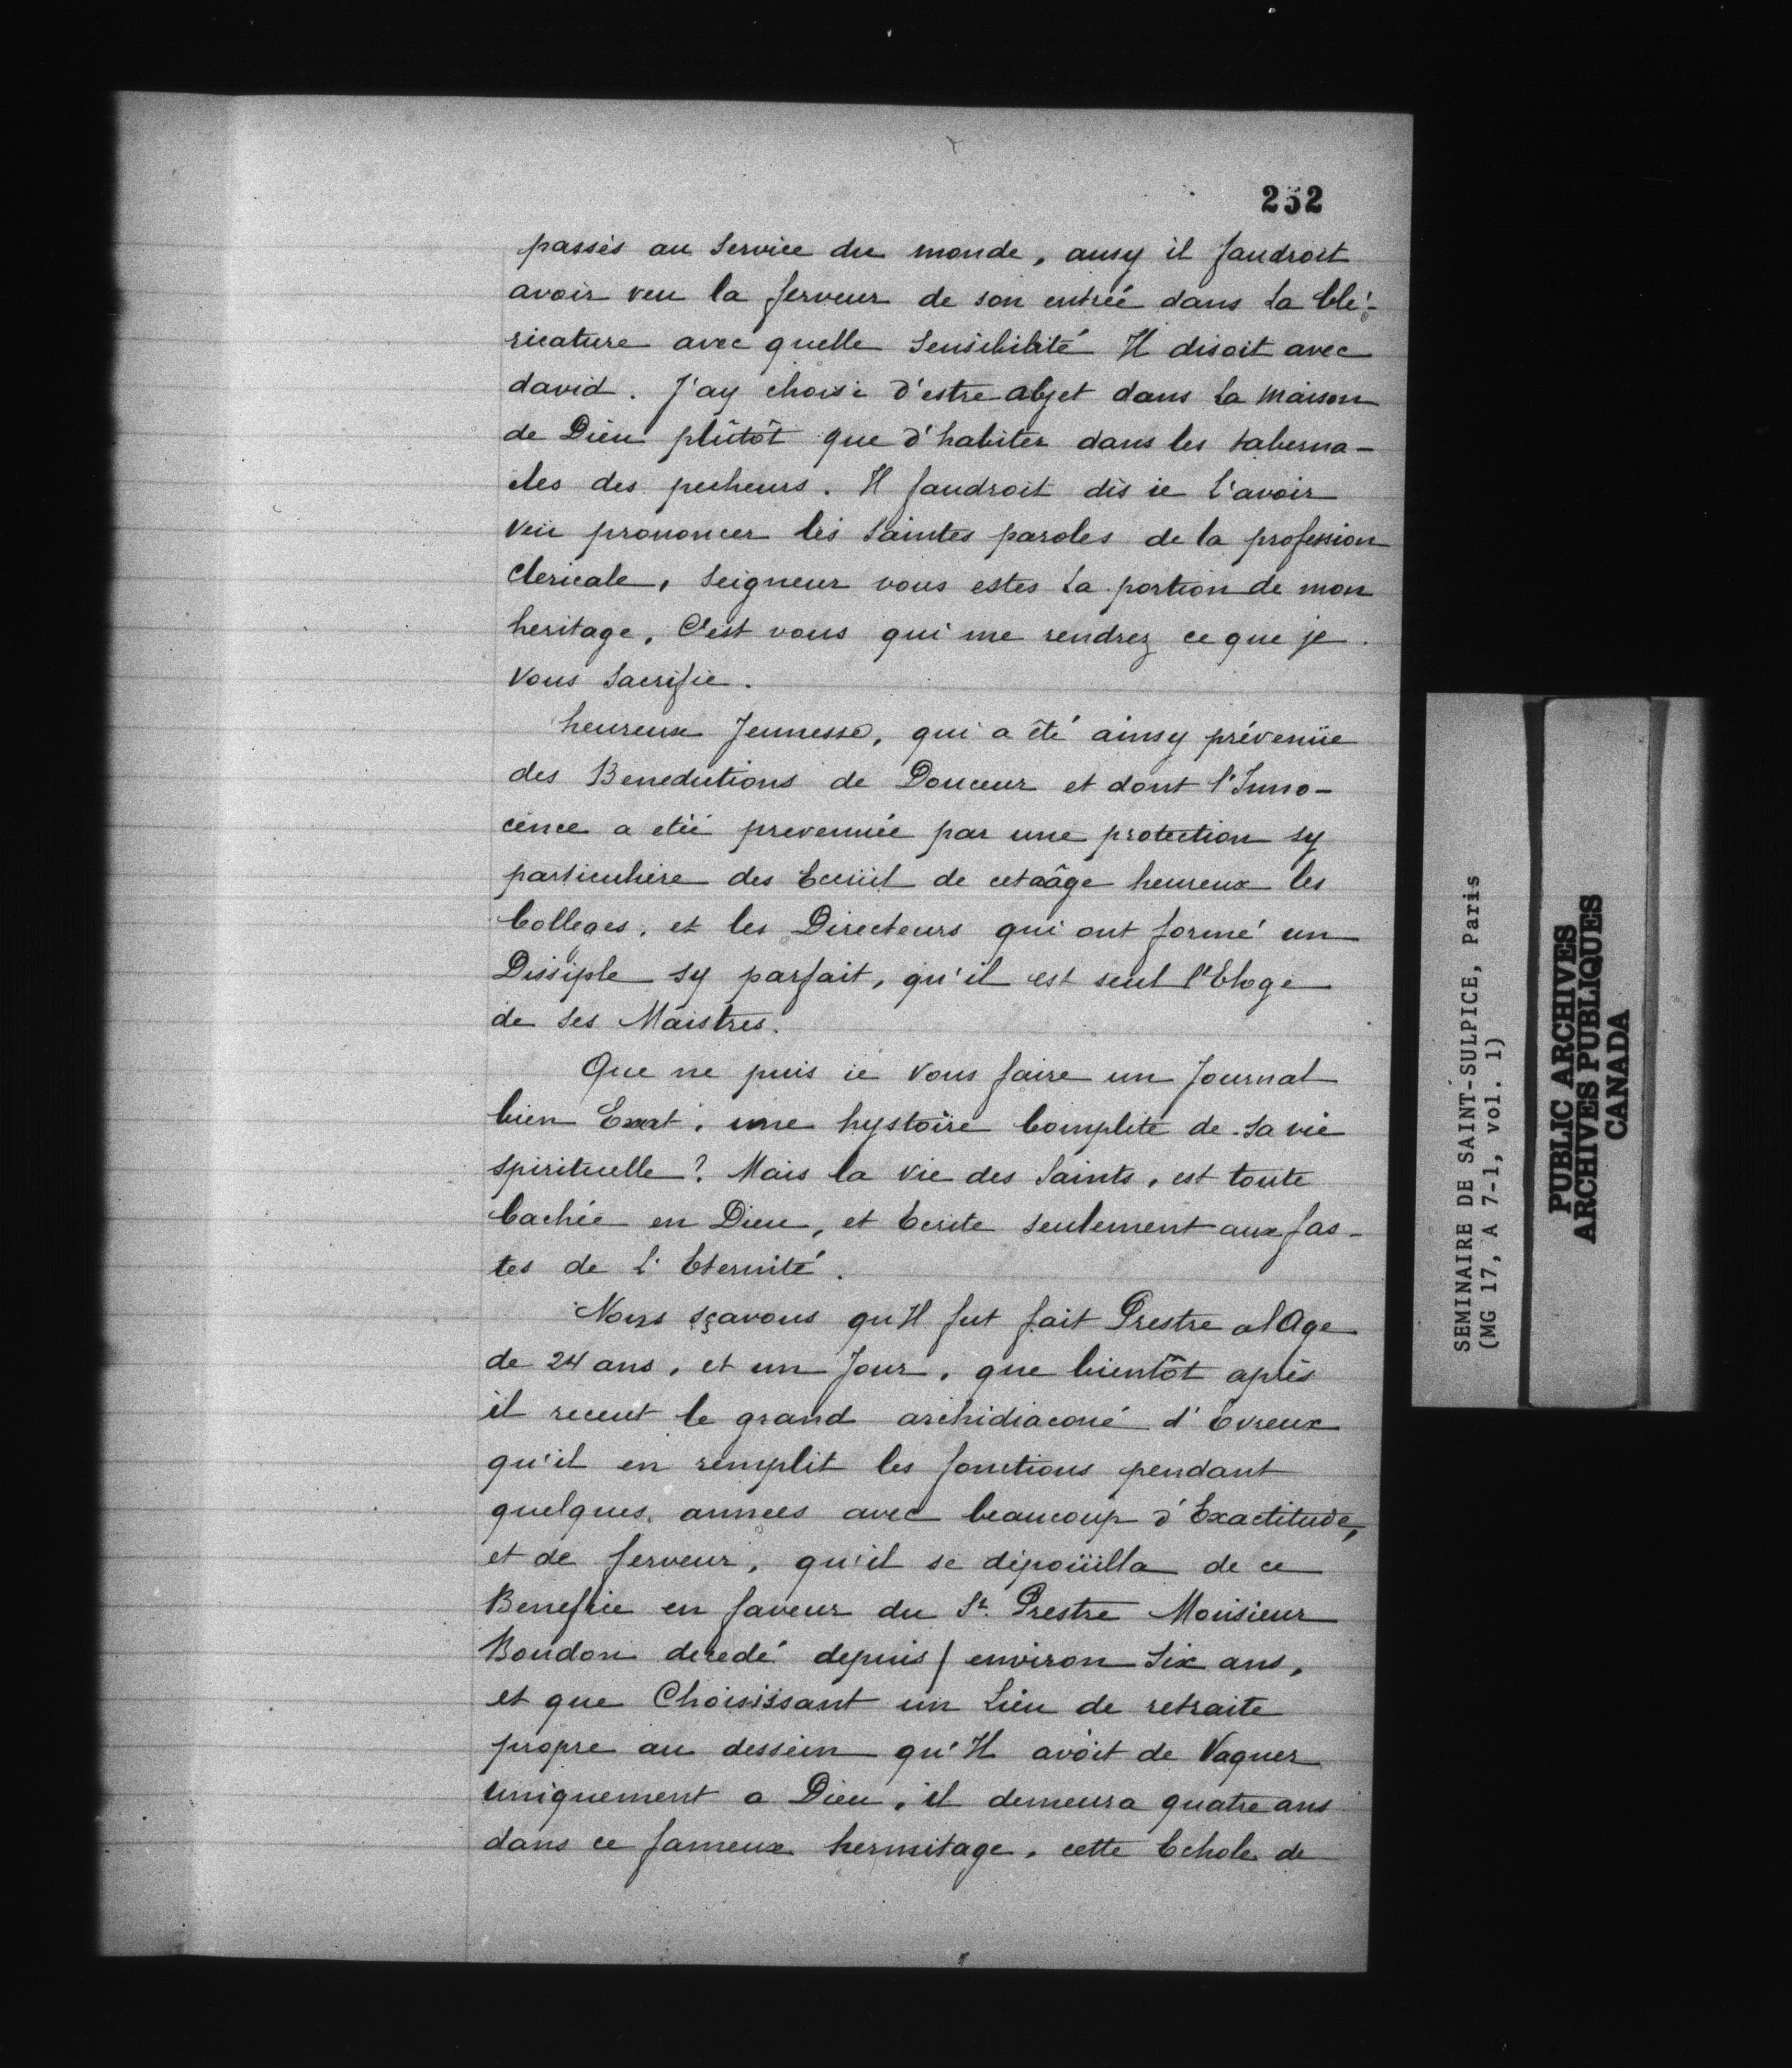 252
passés au Service du monde, ausy il faudroit
avoir veu la ferveur de son entrée dans la Clé-
ricature avec quelle Sensibilité Il disoit avec
david. J'ay choisi d'estre abjet dans la Maison
de Dieu plûtôt que d'habiter dans les taberna-
cles des pecheurs. Il faudroit dis ie l'avoir
veü prononcer les Saintes paroles de la profession
Clericale, Seigneur vous estes la portion de mon
heritage, C'est vous qui me rendrez ce que je
vous Sacrifie.
heureuse Jeunesse, qui a été ainsy prévenüe
des Benedictions de Douceur et dont l'Inno-
cence a etéé prevennée par une protection sy
particuliere des Eceüil de cet aâge heureux les
Colleges, et les Directeurs qui ont formé un
Dissiple sy parfait, qu'il est seul l'Eloge
de ses Maistres.
Que ne puis ie vous faire un Journal
bien Exact, une hystoire Complite de sa vie
spirituelle? Mais la vie des Saints, est toute
Cachée en Dieu, et Ecrite seulement aux fas-
tes de l'Eternité.
Nous sçavons qu Il fut fait Prestre a l Age
de 24 ans, et un Jour, que bientôt aprés
il receut le grand archidiaconé d'Evreux
qu'il en remplit les fonctions pendant
quelques annees avec beaucoup d'Exactitude,
et de ferveur, qu'il se dépoüilla de ce
Benefice en faveur du St. Prestre Monsieur
Boudon decedé depuis / environ Six ans,
et que Choisissant un Lieu de retraite
propre au dessein qu'Il avoit de Vaquer
uniquement a Dieu, il demeura quatre ans
dans ce fameux hermitage, cette Echole de
SEMINAIRE DE SAINT-SULPICE, Paris
(MG 17, A 7-1, vol. 1)
PUBLIC ARCHIVES
ARCHIVES PUBLIQUES
CANADA